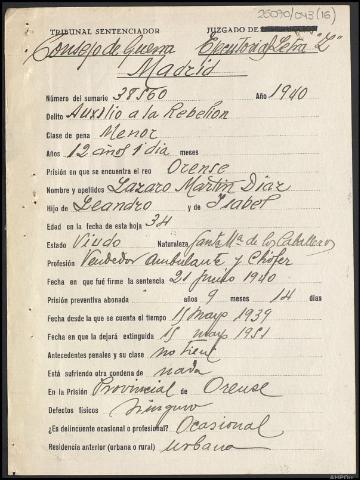 25070/043(16)
TRIBUNAL SENTENCIADOR JUZGADO DE
Consejo de Guerra Ejecutorias Letra "Z"
Madrid
Número del sumario 38560 Año 1940
Delito Auxilio a la Rebelion
Clase de pena Menor
Años 12 años 1 dia meses
Prisión en que se encuentra el reo Orense
Nombre y apellidos Lazaro Martin Diaz
Hijo de Leandro y de Isabel
Edad en fecha de esta hoja 34
Estado Viudo Naturaleza Santa Mª de los Caballeros
Profesión Vendedor Ambulante y Chófer
Fecha en que fué firme la sentencia 21 Junio 1940
Prisión preventiva abonada años 9 meses 14 días
Fecha desde la que se cuenta el tiempo 15 mayo 1939
Fecha en que la dejará extinguida 15 mayo 1951
Antecedentes penales y su clase no tiene
Está sufriendo otra condena de nada
En la Prisión Provincial de Orense
Defectos físicos ninguno
¿Es delincuente ocasional o profesional? Ocasional
Residencia anterior (urbana o rural) urbana